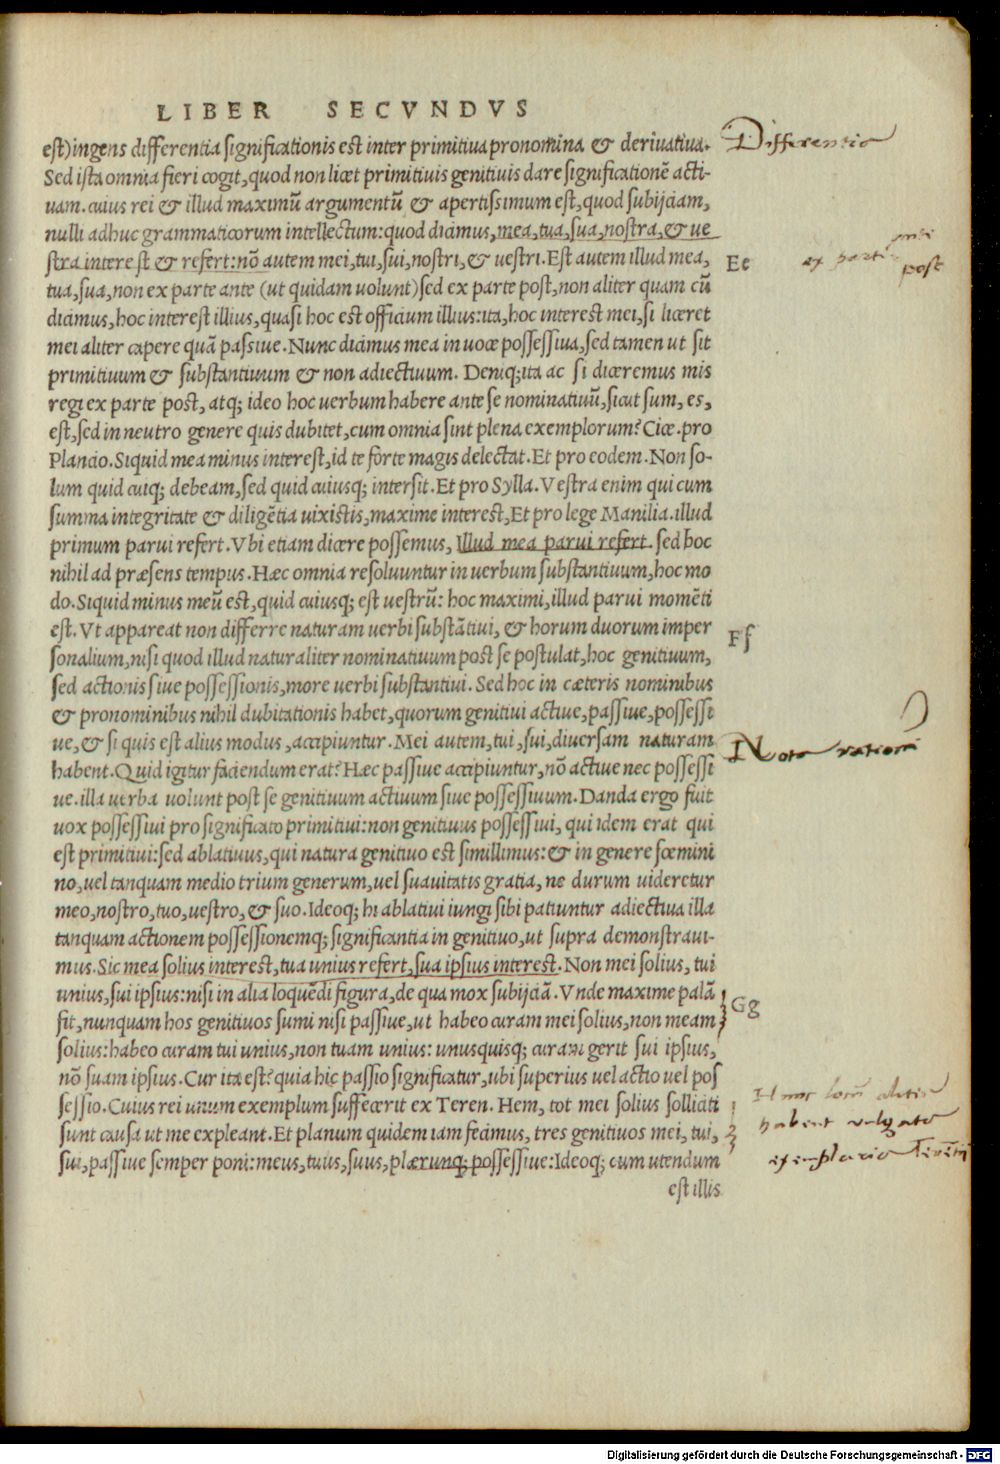 LIBER SECVNDVS
est) ingens differentia significationis est inter primitiua pronomina & deriuatiua.
Sed ista omnia fieri cogit, quod non licet primitiuis genitiuis dare significationē acti-
uam. cuius rei & illud maximū argumentū & apertissimum est, quod subijciam,
nulli adhuc grammaticorum intellectum: quod dicimus, mea, tua, sua, nostra, & ue
stra interest & refert: nō autem mei, tui, sui, nostri, & uestri. Est autem illud mea,
tua, sua, non ex parte ante (ut quidam uolunt) sed ex parte post, non aliter quam cū
dicimus, hoc interest illius, quasi hoc est officium illius: ita, hoc interest mei, si liceret
mei aliter capere quā passiue. Nunc dicimus mea in uoce possessiua, sed tamen ut sit
primitiuum & substantiuum & non adiectiuum. Deniq; ita ac si diceremus mis
regi ex parte post, atq; ideo hoc uerbum habere ante se nominatiuū, sicut sum, es,
est, sed in neutro genere quis dubitet, cum omnia sint plena exemplorum? Cice. pro
Plancio. Siquid mea minus interest, id te forte magis delectat. Et pro eodem. Non so-
lum quid cuiq; debeam, sed quid cuiusq; intersit. Et pro Sylla. Vestra enim qui cum
summa integritate & diligētia uixistis, maxime interest, Et pro lege Manilia. illud
primum parui refert. Vbi etiam dicere possemus, Illud mea parui refert. sed hoc
nihil ad præsens tempus. Hæc omnia resoluuntur in uerbum substantiuum, hoc mo
do. Siquid minus meū est, quid cuiusq; est uestrū: hoc maximi, illud parui momēti
est. Vt appareat non differre naturam uerbi substātiui, & horum duorum imper
sonalium, nisi quod illud naturaliter nominatiuum post se postulat, hoc genitiuum,
sed actionis siue possessionis, more uerbi substantiui. Sed hoc in cæteris nominibus
& pronominibus nihil dubitationis habet, quorum genitiui actiue, passiue, possessi
ue, & si quis est alius modus, accipiuntur. Mei autem, tui, sui, diuersam naturam
habent. Quid igitur faciendum erat? Hæc passiue accipiuntur, nō actiue nec possessi
ue. illa uerba uolunt post se genitiuum actiuum siue possessiuum. Danda ergo fuit
uox possessiui pro significato primitiui: non genitiuus possessiui, qui idem erat qui
est primitiui: sed ablatiuus, qui natura genitiuo est simillimus: & in genere fœmini
no, uel tanquam medio trium generum, uel suauitatis gratia, ne durum uideretur
meo, nostro, tuo, uestro, & suo. Ideoq; hi ablatiui iungi sibi patiuntur adiectiua illa
tanquam actionem possessionemq; significantia in genitiuo, ut supra demonstraui-
mus. Sic mea solius interest, tua unius refert, sua ipsius interest. Non mei solius, tui
unius, sui ipsius: nisi in alia loquēdi figura, de qua mox subijciā. Vnde maxime palā
fit, nunquam hos genitiuos sumi nisi passiue, ut habeo curam mei solius, non meam
solius: habeo curam tui unius, non tuam unius: unusquisq; curam gerit sui ipsius,
nō suam ipsius. Cur ita est? quia hic passio significatur, ubi superius uel actio uel pos
sessio. Cuius rei unum exemplum suffecerit ex Teren. Hem, tot mei solius solliciti
sunt causa ut me expleant. Et planum quidem iam fecimus, tres genitiuos mei, tui,
sui, passiue semper poni: meus, tuus, suus, plærunq; possessiue: Ideoq; cum utendum
est illis
Differentia
Ee
ex parte
post
Ff
Nota rationem
Gg
Hunc locū aliter
habent vulgata
exemplaria Terētij
Digitalisierung gefördert durch die Deutsche Forschungsgemeinschaft - DFG